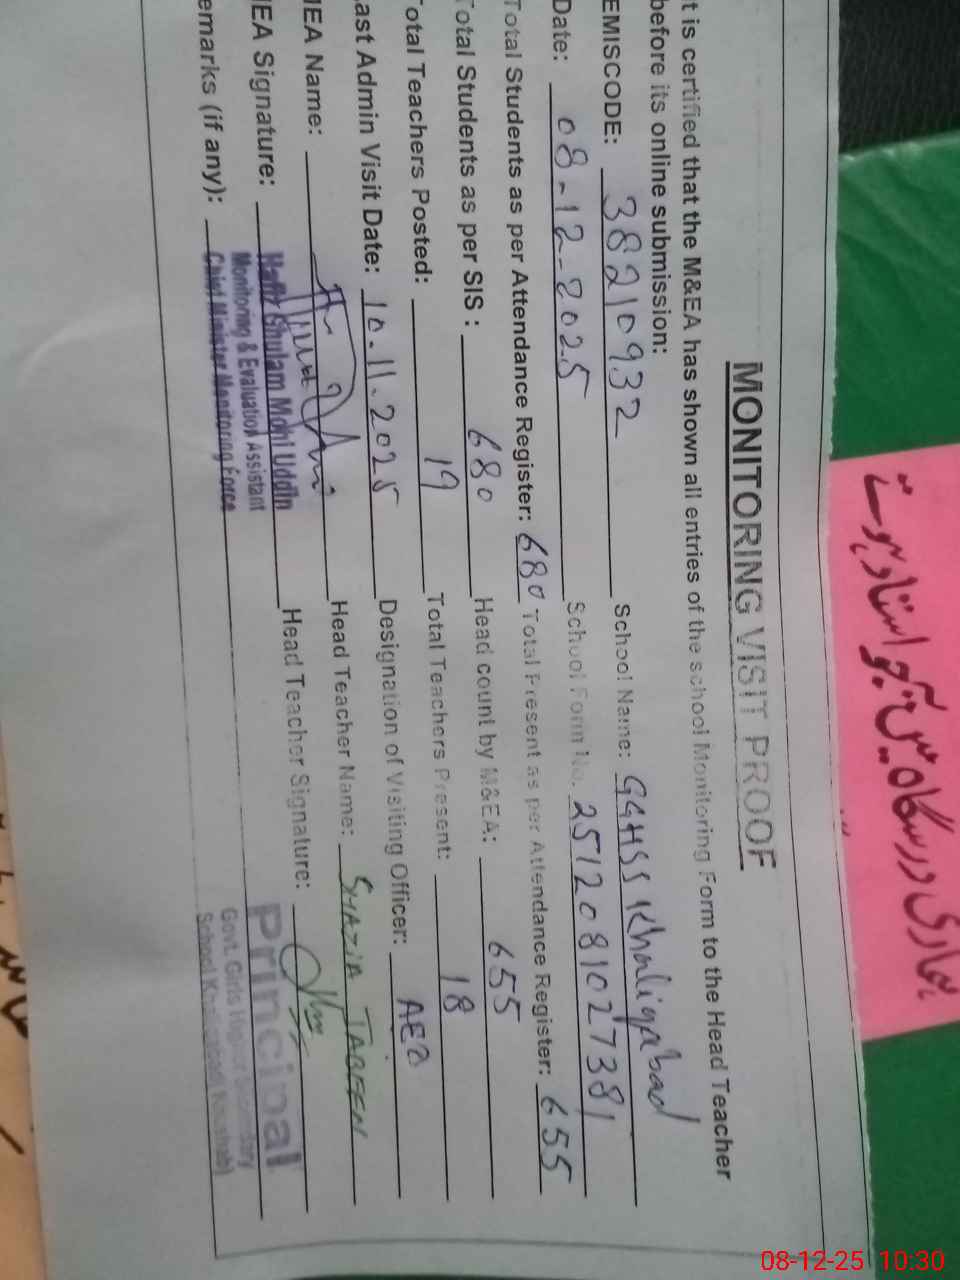 MONITORING VISIT PROOF
t is certified that the M&EA has shown all entries of the school Monitoring Form to the Head Teacher
before its online submission:
EMISCODE: 38210932 School Name: GGHSS Khaliqabad
Date: 08-12-2025 School Form No. 2512081027381
Total Students as per Attendance Register: 680 Total Present as per Attendance Register: 655
Total Students as per SIS : 680 Head count by M&EA: 655
Total Teachers Posted: 19 Total Teachers Present: 18
ast Admin Visit Date: 10.11.2025 Designation of Visiting Officer: AEO
IEA Name: Head Teacher Name: SHAZIA JABEEN
IEA Signature: Head Teacher Signature:
emarks (if any):
Hafiz Ghulam Mohi Uddin
Monitoring & Evaluation Assistant
Chief Minister Monitoring Force
Principal
Govt. Girls Higher Secondary
School Khaliqabad (Khushab)
ہماری درسگاہ میں جو استاد ہوتے
08-12-25 10:30